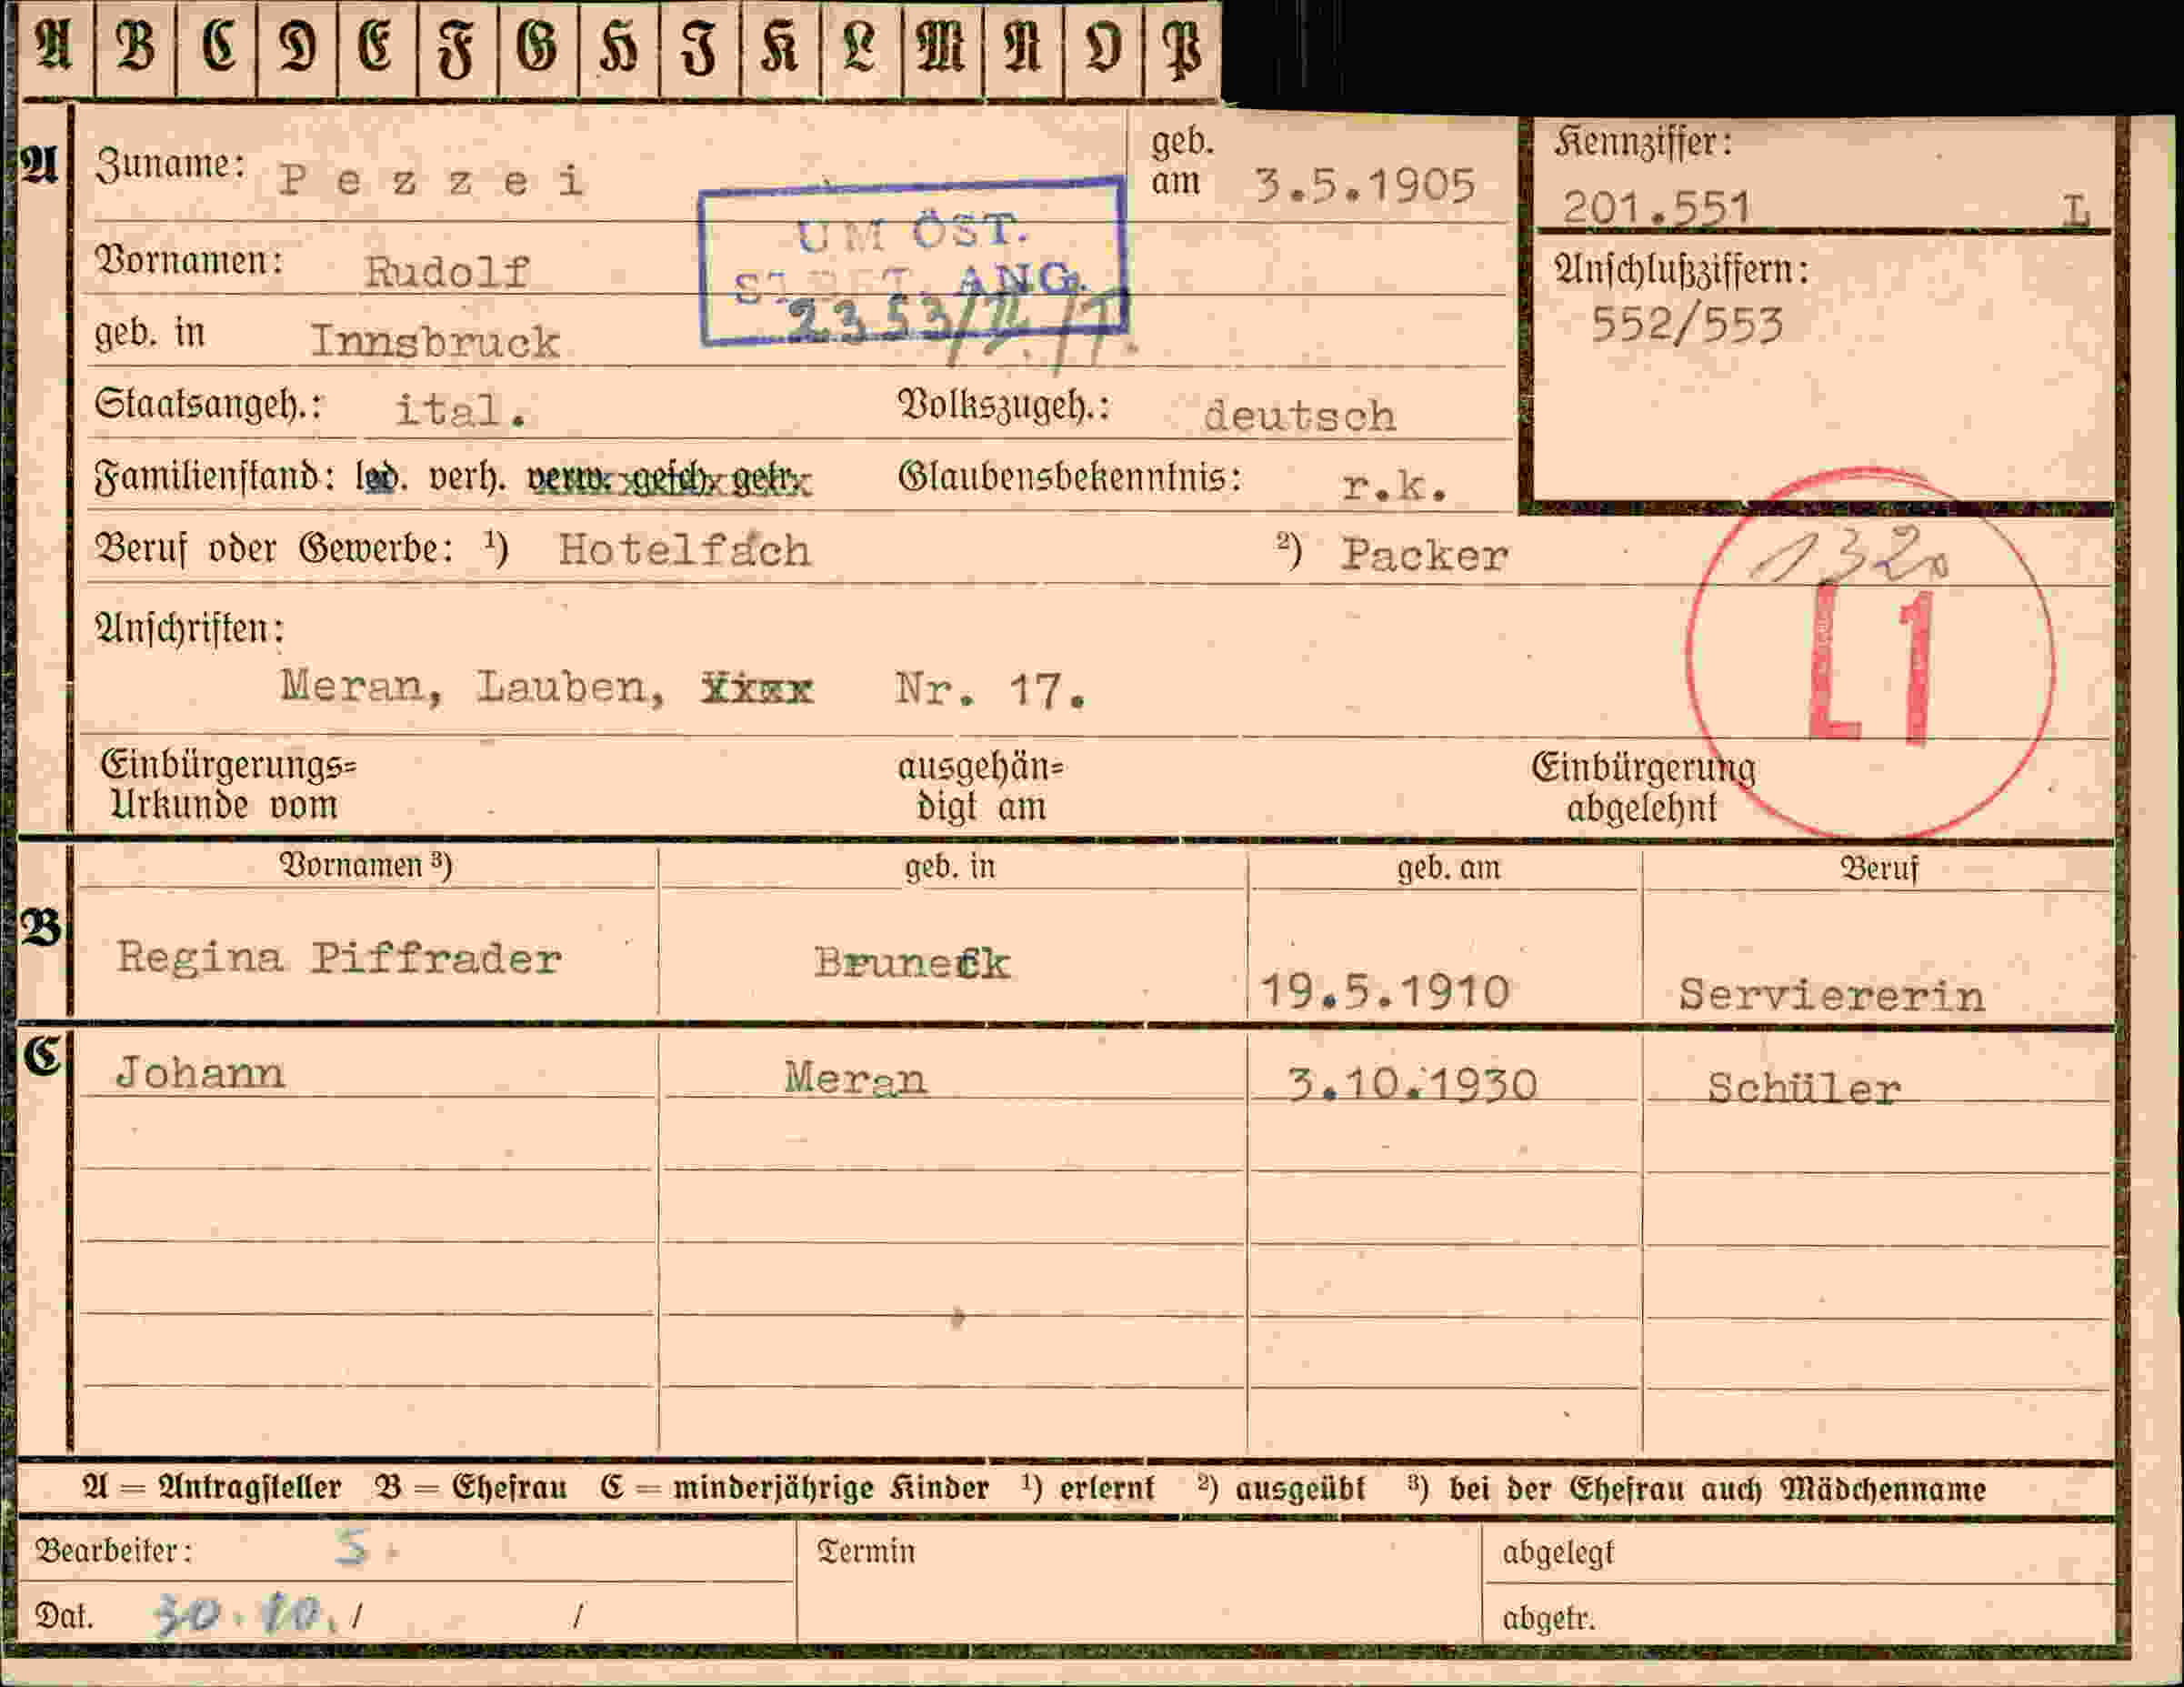 A B C D E F G H J K L M N O P
A Zuname: Pezzei geb. am 3.5.1905
Kennziffer: 201.551 L
UM ÖST.
ANG.
2353/II/T.
Vornamen: Rudolf
Anschlußziffern:
552/553
geb. in Innsbruck
Staatsangeh.: ital. Volkszugeh.: deutsch
Familienstand: led. verh. verw. gesch. getr. Glaubensbekenntnis: r.k.
Beruf oder Gewerbe: ¹) Hotelfach ²) Packer
1320
L1
Anschriften:
Meran, Lauben, Nr. 17.
Einbürgerungs= ausgehän= Einbürgerung
Urkunde vom digt am abgelehnt
Vornamen ³) geb. in geb. am Beruf
B Regina Piffrader Bruneck 19.5.1910 Serviererin
C Johann Meran 3.10.1930 Schüler
A = Antragsteller B = Ehefrau C = minderjährige Kinder ¹) erlernt ²) ausgeübt ³) bei der Ehefrau auch Mädchenname
Bearbeiter: S. Termin abgelegt
Dat. 30.10. / / abgetr.